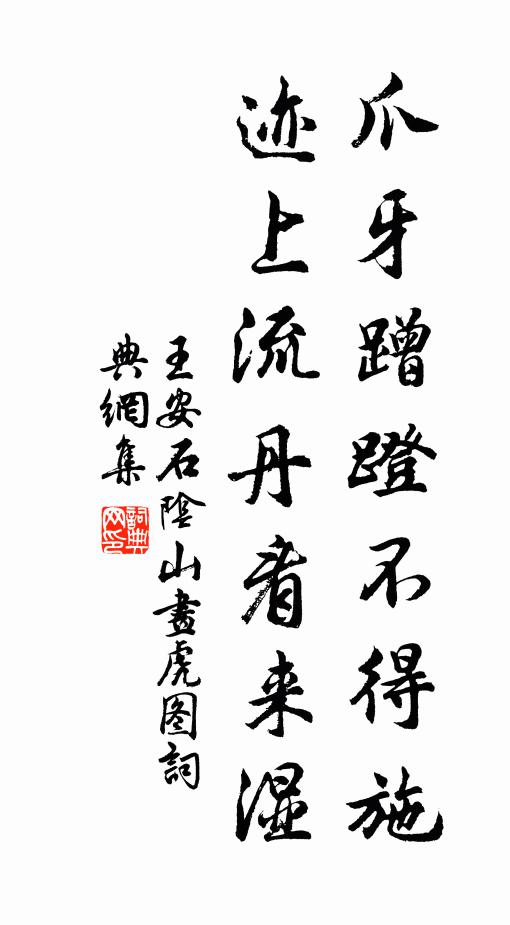 爪牙蹭蹬不得施
迹上流丹看来湿
王安石陰山畫虎图詞
典網集
詞典
网印